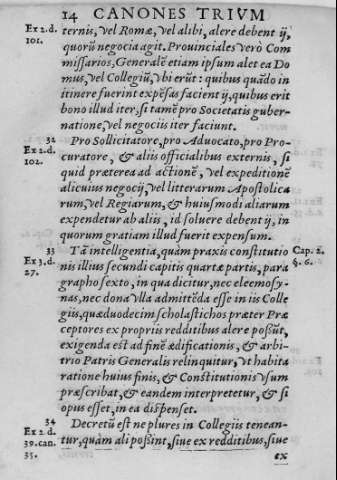 14 CANONES TRIVM
Ex 2. d. 101.
ternis, vel Romæ, vel alibi, alere debent ij,
quorũ negocia agit. Prouinciales verò Com
missarios, Generalẽ etiam ipsum alet ea Do
mus, vel Collegiũ, vbi erũt: quibus quãdo in
itinere fuerint expẽsas facient ij, quibus erit
bono illud iter, si tamẽ pro Societatis guber-
natione, vel negociis iter faciunt.
32
Ex 2. d. 102.
Pro Sollicitatore, pro Aduocato, pro Pro-
curatore, & aliis officialibus externis, si
quid præterea ad actionẽ, vel expeditionẽ
alicuius negocij, vel litterarum Apostolica
rum, vel Regiarum, & huiusmodi aliarum
expendetur ab aliis, id soluere debent ij, in
quorum gratiam illud fuerit expensum.
33
Ex 3. d. 27.
Cap. 2. §. 6.
Tã intelligentia, quàm praxis constitutio
nis illius secundi capitis quartæ partis, para
grapho sexto, in qua dicitur, nec eleemosy-
nas, nec dona vlla admittẽda esse in iis Colle
giis, quæ duodecim scholastichos præter Præ
ceptores ex propriis redditibus alere possũt,
exigenda est ad finẽ ædificationis, & arbi-
trio Patris Generalis relinquitur, vt habita
ratione huius finis, & Constitutionis vsum
præscribat, & eandem interpretetur, & si
opus esset, in ea dispenset.
34
Ex 2. d. 39. can. 35.
Decretũ est ne plures in Collegiis tenean-
tur, quàm ali possint, siue ex redditibus, siue
ex